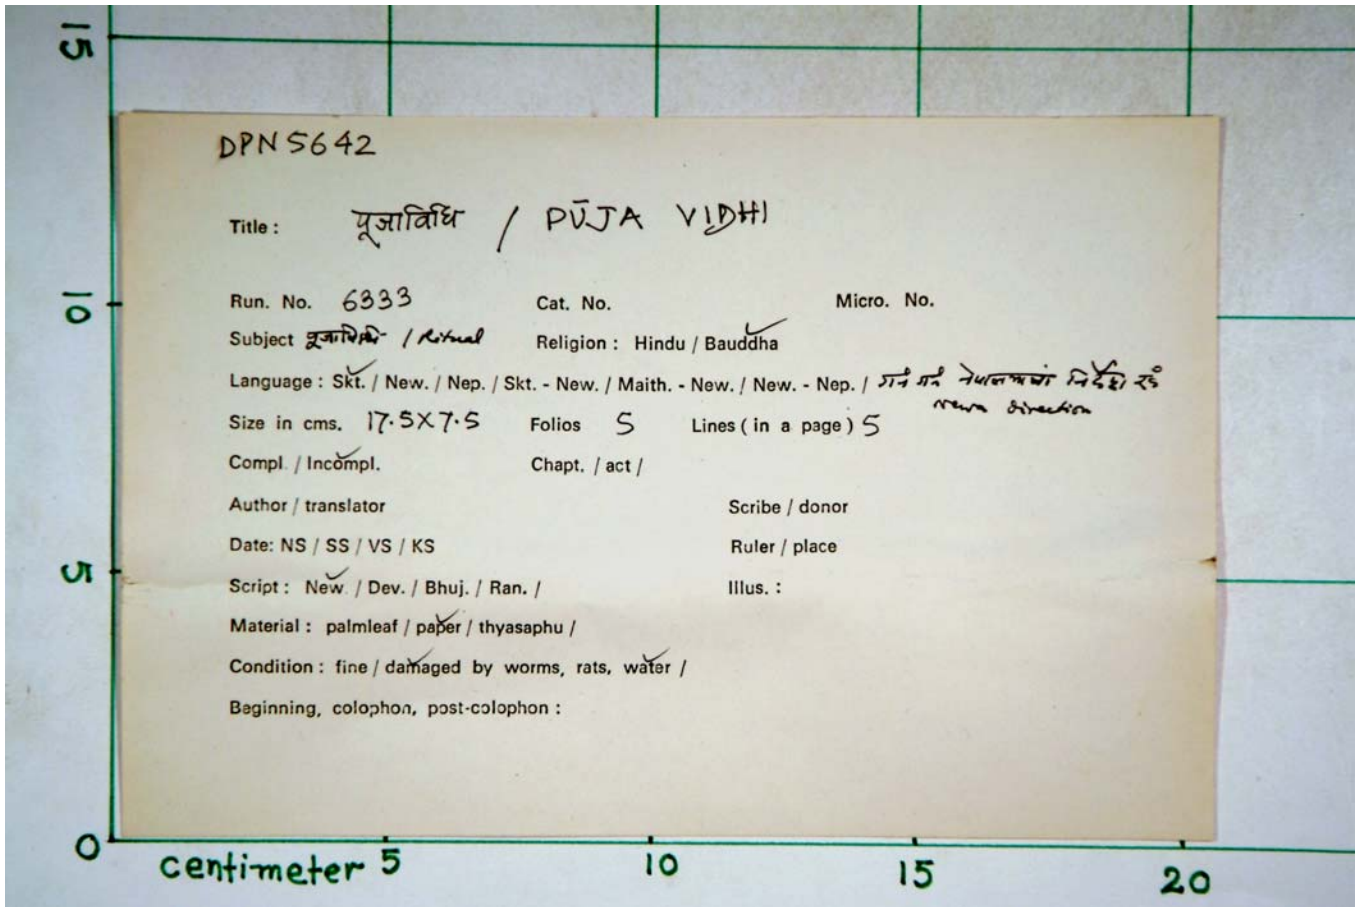 15
DPN 5642
Title : पूजाविधि / PŪJA VIDHI
10
Run. No. 6333 Cat. No. Micro. No.
Subject पूजाविधि / Ritual Religion : Hindu / Bauddha
Language : Skt. / New. / Nep. / Skt. - New. / Maith. - New. / New. - Nep. / निर्देश
newa direction
Size in cms. 17.5X7.5 Folios 5 Lines ( in a page ) 5
Compl. / Incompl. Chapt. / act /
Author / translator Scribe / donor
Date: NS / SS / VS / KS Ruler / place
5
Script : New. / Dev. / Bhuj. / Ran. / Illus. :
Material : palmleaf / paper / thyasaphu /
Condition : fine / damaged by worms, rats, water /
Beginning, colophon, post-colophon :
0
centimeter 5 10 15 20